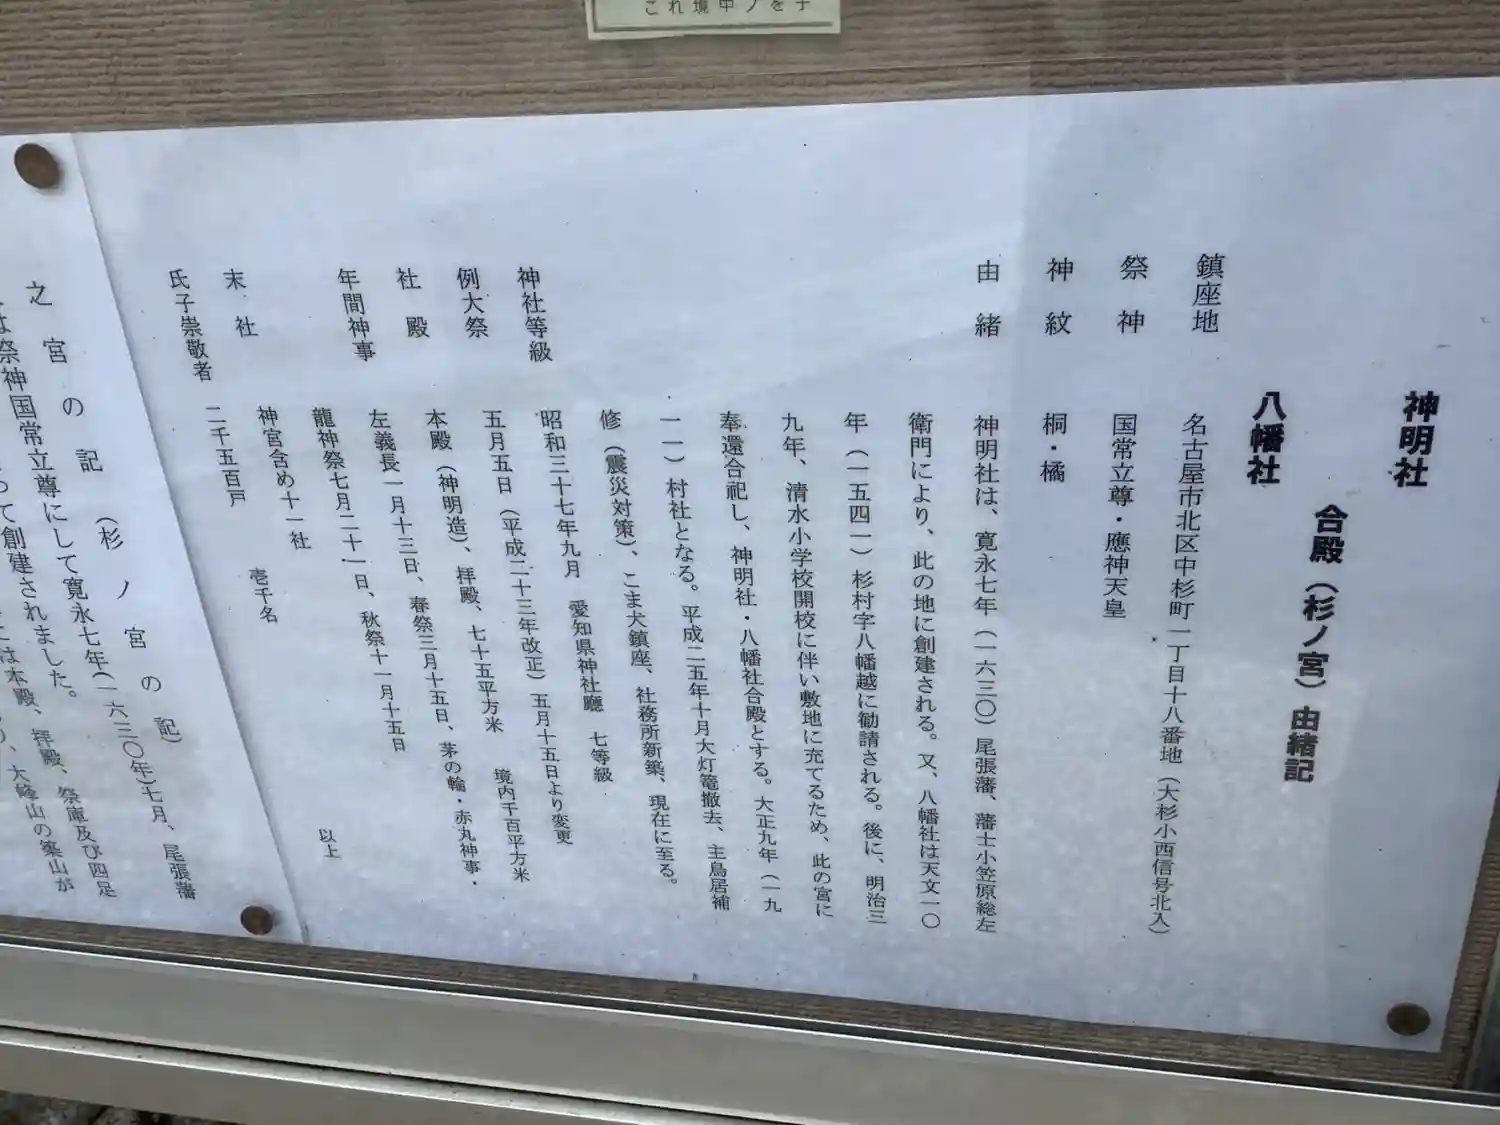 これ境中ノを子
神明社
合殿（杉ノ宮）由緒記
八幡社
鎮座地　名古屋市北区中杉町一丁目十八番地（大杉小西信号北入）
祭神　国常立尊・應神天皇
神紋　桐・橘
由緒　神明社は、寛永七年（一六三〇）尾張藩、藩士小笠原総左
衛門により、此の地に創建される。又、八幡社は天文一〇
年（一五四一）杉村字八幡越に勧請される。後に、明治三
九年、清水小学校開校に伴い敷地に充てるため、此の宮に
奉還合祀し、神明社・八幡社合殿とする。大正九年（一九
一一）村社となる。平成二五年十月大灯篭撤去、主鳥居補
修（震災対策）、こま犬鎮座、社務所新築、現在に至る。
神社等級　昭和三十七年九月　愛知県神社廳　七等級
例大祭　五月五日（平成二十三年改正）五月十五日より変更
社殿　本殿（神明造）、拝殿、七十五平方米　境内千百平方米
年間神事　左義長一月十三日、春祭三月十五日、茅の輪・赤丸神事・
龍神祭七月二十一日、秋祭十一月十五日
末社　神宮含め十一社
氏子崇敬者　二千五百戸　壱千名
以上
之宮の記（杉ノ宮の記）
は祭神国常立尊にして寛永七年(一六三〇年)七月、尾張藩
って創建されました。
は本殿、拝殿、祭庫及び四足
、大峰山の築山が